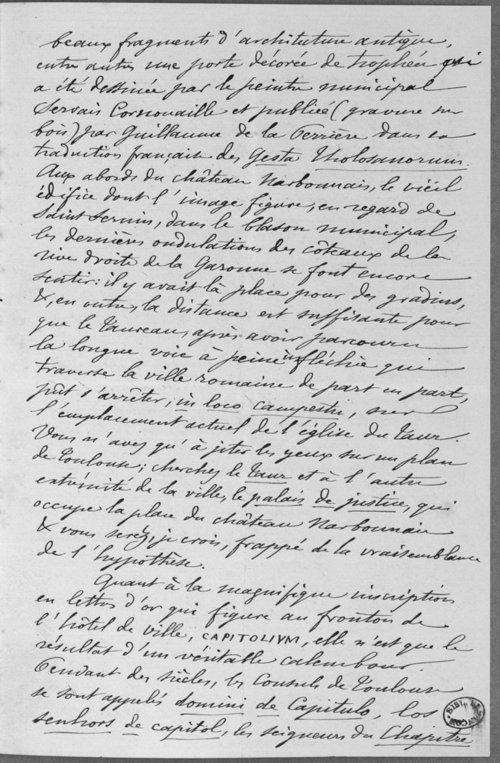 beaux fragments d'architecture antique,
entre autres une porte décorée de trophées qui
a été dessinée par le peintre municipal
Servais Cornouaille et publiée (gravure sur
bois) par Guillaume de la Perrière dans sa
traduction française des Gesta Tholosanorum.
Aux abords du château Narbonnais, le vieil
édifice dont l'image figure, en regard de
Saint Sernin, dans le blason municipal,
les dernières ondulations des côteaux de la
rive droite de la Garonne se font encore
sentir: il y avait là place pour des gradins,
&, en outre, la distance est suffisante pour
que le Taureau, après avoir parcouru
la longue voie à peine infléchie qui
traverse la ville romaine de part en part,
pût s'arrêter, in loco campestri, sur
l'emplacement actuel de l'église du Taur.
Vous n'avez qu'à jeter les yeux sur un plan
de Toulouse; cherchez le Taur et à l'autre
extrémité de la ville, le palais de justice, qui
occupe la place du château Narbonnais
& vous serez, je crois, frappé de la vraisemblance
de l'hypothèse.
Quant à la magnifique inscription
en lettres d'or qui figure au fronton de
l'hôtel de ville, CAPITOLIVM, elle n'est que le
résultat d'un véritable calembour.
Pendant des siècles, les Consuls de Toulouse
se sont appelés domini de Capitulo, los
senhors de capitol, les seigneurs du Chapitre